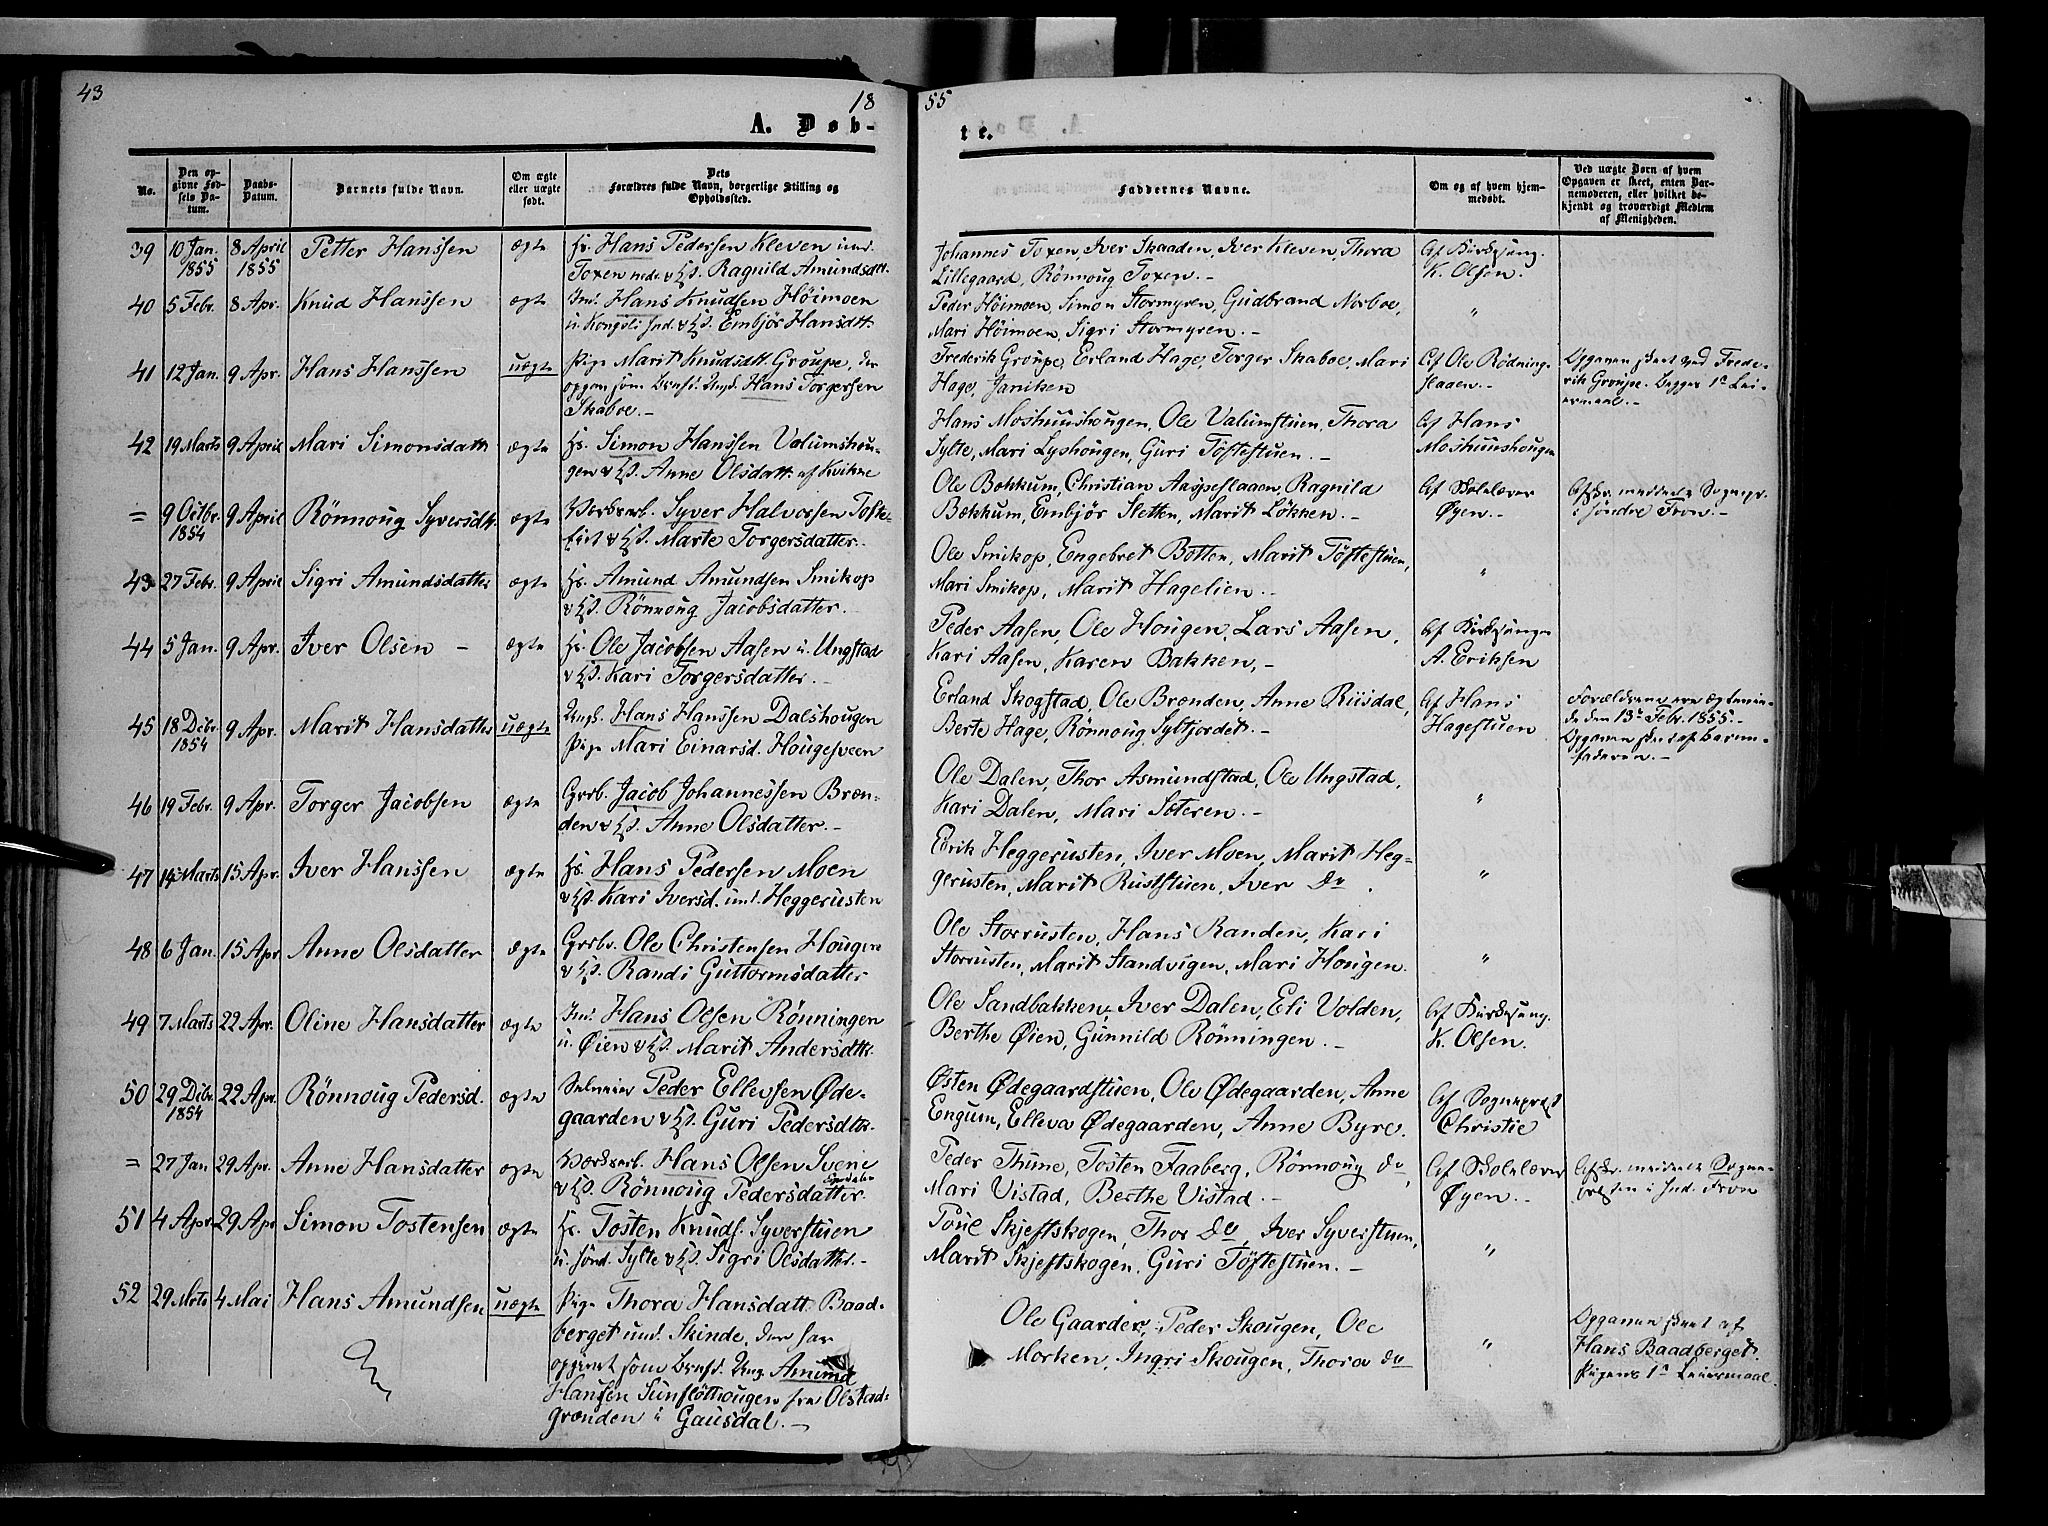 43
18
55
A. Døb-
te.
No.
Den op-
givne Fød-
sels Da-
tum.
Daabs-
Datum.
Barnets fulde Navn.
Om ægte
eller uægte
født.
Dets
Forældres fulde Navn, borgerlige Stilling og
Opholdssted.
Faddernes Navne.
Om og af hvem hjem-
medøbt.
Ved uægte Børn af hvem
Opgaven er skeet, enten Bar-
nemoderen, eller hvilket be-
kjendt og troværdigt Medlem
af Menigheden.
39 10 Jan. 1855 8 April 1855 Petter Hanssen ægte Hs. Hans Pedersen Kleven ind.
Toxen nedr. Ragnild Amundsdtt.
Johannes Toxen, Iver Skaaden, Iver Kleven, Thora
Lillegaard, Rönnoug Toxen. –
Af Kirkesang.
K. Olsen.
40 5 Febr. 8 Apr. Knud Hanssen ægte Ind. Hans Knudsen Höimoen
u. Kongsli Embjör Hansdtt.
Peder Höimoen, Simon Stormyren, Gudbrand Norboe,
Mari Höimoen, Sigri Stormyren. –
"
41 12 Jan. 9 Apr. Hans Hanssen uægte Pige Marit Knudsdtt. Groupe, der
opgav som Barnf. Hans Torgersen
Skaboe. –
Frederik Groupe, Erland Hage, Torger Skaboe, Mari
Hage, Janiken
Af Ole Rödnings-
slaaen. –
Opgaven skeet ved Frede-
rik Groupe. Begges 1e Lei-
ermaal. –
42 19 Marts 9 April Mari Simonsdatt. ægte Hs. Simon Hanssen Valumshou-
gen Anne Olsdatt. af Kvikne
Hans Moshuushougen, Ole Valumstuen, Thora
Sylte, Mari Lyshougen, Guri Töftestuen. –
Af Hans
Moshuushougen
= 9 Octbr. 1854 9 April Rönnoug Syversdtt. ægte Syver Halvorsen Tofte-
Marte Torgersdatter. –
Ole Bækkum, Christian Aaspeslaaen, Ragnild
Bækkum, Embjör Sletten, Marit Lökken. –
Af Skolelærer
Øyen. –
Afskr. meddelt Sognepr.
i söndre Fron. –
43 27 Febr. 9 April Sigri Amundsdatter ægte Hs. Amund Amundsen Smikop
Rönnoug Jacobsdatter. –
Ole Smikop, Engebret Botten, Marit Töftestuen,
Mari Smikop, Marit Hagelien. –
"
44 5 Jan. 9 Apr. Iver Olsen – ægte Hs. Ole Jacobsen Aasen u. Ungstad
Kari Torgersdatter. –
Peder Aasen, Ole Hougen, Lars Aasen,
Kari Aasen, Karen Bakken, –
Af Kirkesanger
A. Eriksen
45 18 Debr. 1854 9 Apr. Marit Hansdatter uægte Ungk. Hans Hanssen Dalshougen
Pige Mari Einarsd. Hougesveen
Erland Skogstad, Ole Brænden, Anne Riisdal,
Berte Hage, Rönnoug Syltfjordet. –
Af Hans
Hagestuen
Forældrene ere ægtevie-
de den 13e Febr. 1855. –
Opgaven skeet af Barne-
faderen. –
46 19 Febr. 9 Apr. Torger Jacobsen ægte Grrb. Jacob Johannessen Bræn-
den Anne Olsdatter. –
Ole Dalen, Thor Asmundstad, Ole Ungstad,
Kari Dalen, Mari Sæteren. –
"
47 14 Marts 15 Apr. Iver Hanssen ægte Hs. Hans Pedersen Moen
Kari Iversd. ind. Heggerusten
Edrik Heggerusten, Iver Moen, Marit Heg-
gerusten, Marit Ruststuen, Iver do .
"
48 6 Jan. 15 Apr Anne Olsdatter ægte Grrbr. Ole Christensen Hougen
Randi Guttormsdatter
Ole Storrusten, Hans Randen, Kari
Storrusten, Marit Standvigen, Mari Hougen.
"
49 7 Marts 22 Apr. Oline Hansdatter ægte Ind. Hans Olsen Rönningen
u. Øien Marit Andersdtt.
Ole Sandbakken, Iver Dalen, Eli Volden,
Berthe Øien, Gunnild Rönningen. –
Af Kirkesang.
K. Olsen.
50 29 Debr. 1854 22 Apr. Rönnoug Pedersd. ægte Selveier Peder Ellevsen Øde-
gaarden Guri Pedersdtt.
Østen Ødegaardstuen, Ole Ødegaarden, Anne
Engum, Elleva Ødegaarden, Anne Byre.
Af Sognepræst
Christie
= 27 Jan 29 Apr. Anne Hansdatter ægte Hans Olsen Svene
Rönnoug Pedersdatter.
Peder Thune, Tosten Faaberg, Rönnoug do,
Mari Vistad, Berthe Vistad. –
Af Skolelærer
Øyen. –
Afskr. meddelt Sogne-
præsten i Snd. Fron
51 4 Apr. 29 Apr Simon Tostensen ægte Hs. Tosten Knuds. Syverstuen
u. sönd. Sylte Sigri Olsdatter. –
Poul Skjeftskogen, Thor do, Iver Syverstuen,
Marit Skjeftskogen, Guri Töftestuen. –
"
52 29 Mrts 4 Mai Hans Amundsen uægte Pige Thora Hansdatt. Baad-
berget und. Skinde, der har
opgivet som Barnf. Ung. Amund
Hansen Sunflötthougen fra Olstad-
grænden i Gausdal. –
Ole Gaarder, Peder Skougen, Ole
Morken, Ingri Skougen, Thora do
"
Opgaven skeet af
Hans Baadberget.
Pigens 1e Leiermaal.